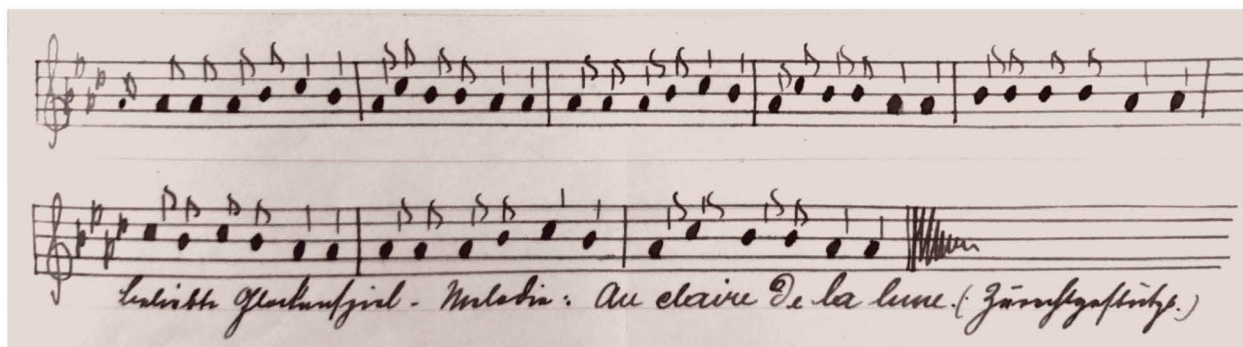 beliebte Glockenspiel-Melodie: Au claire de la lune. (Zurechtgestützt.)